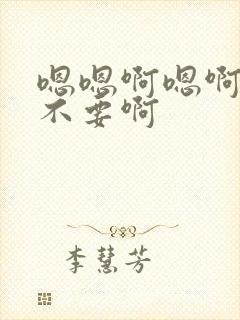 嗯嗯啊嗯啊
不要啊
李慧芳